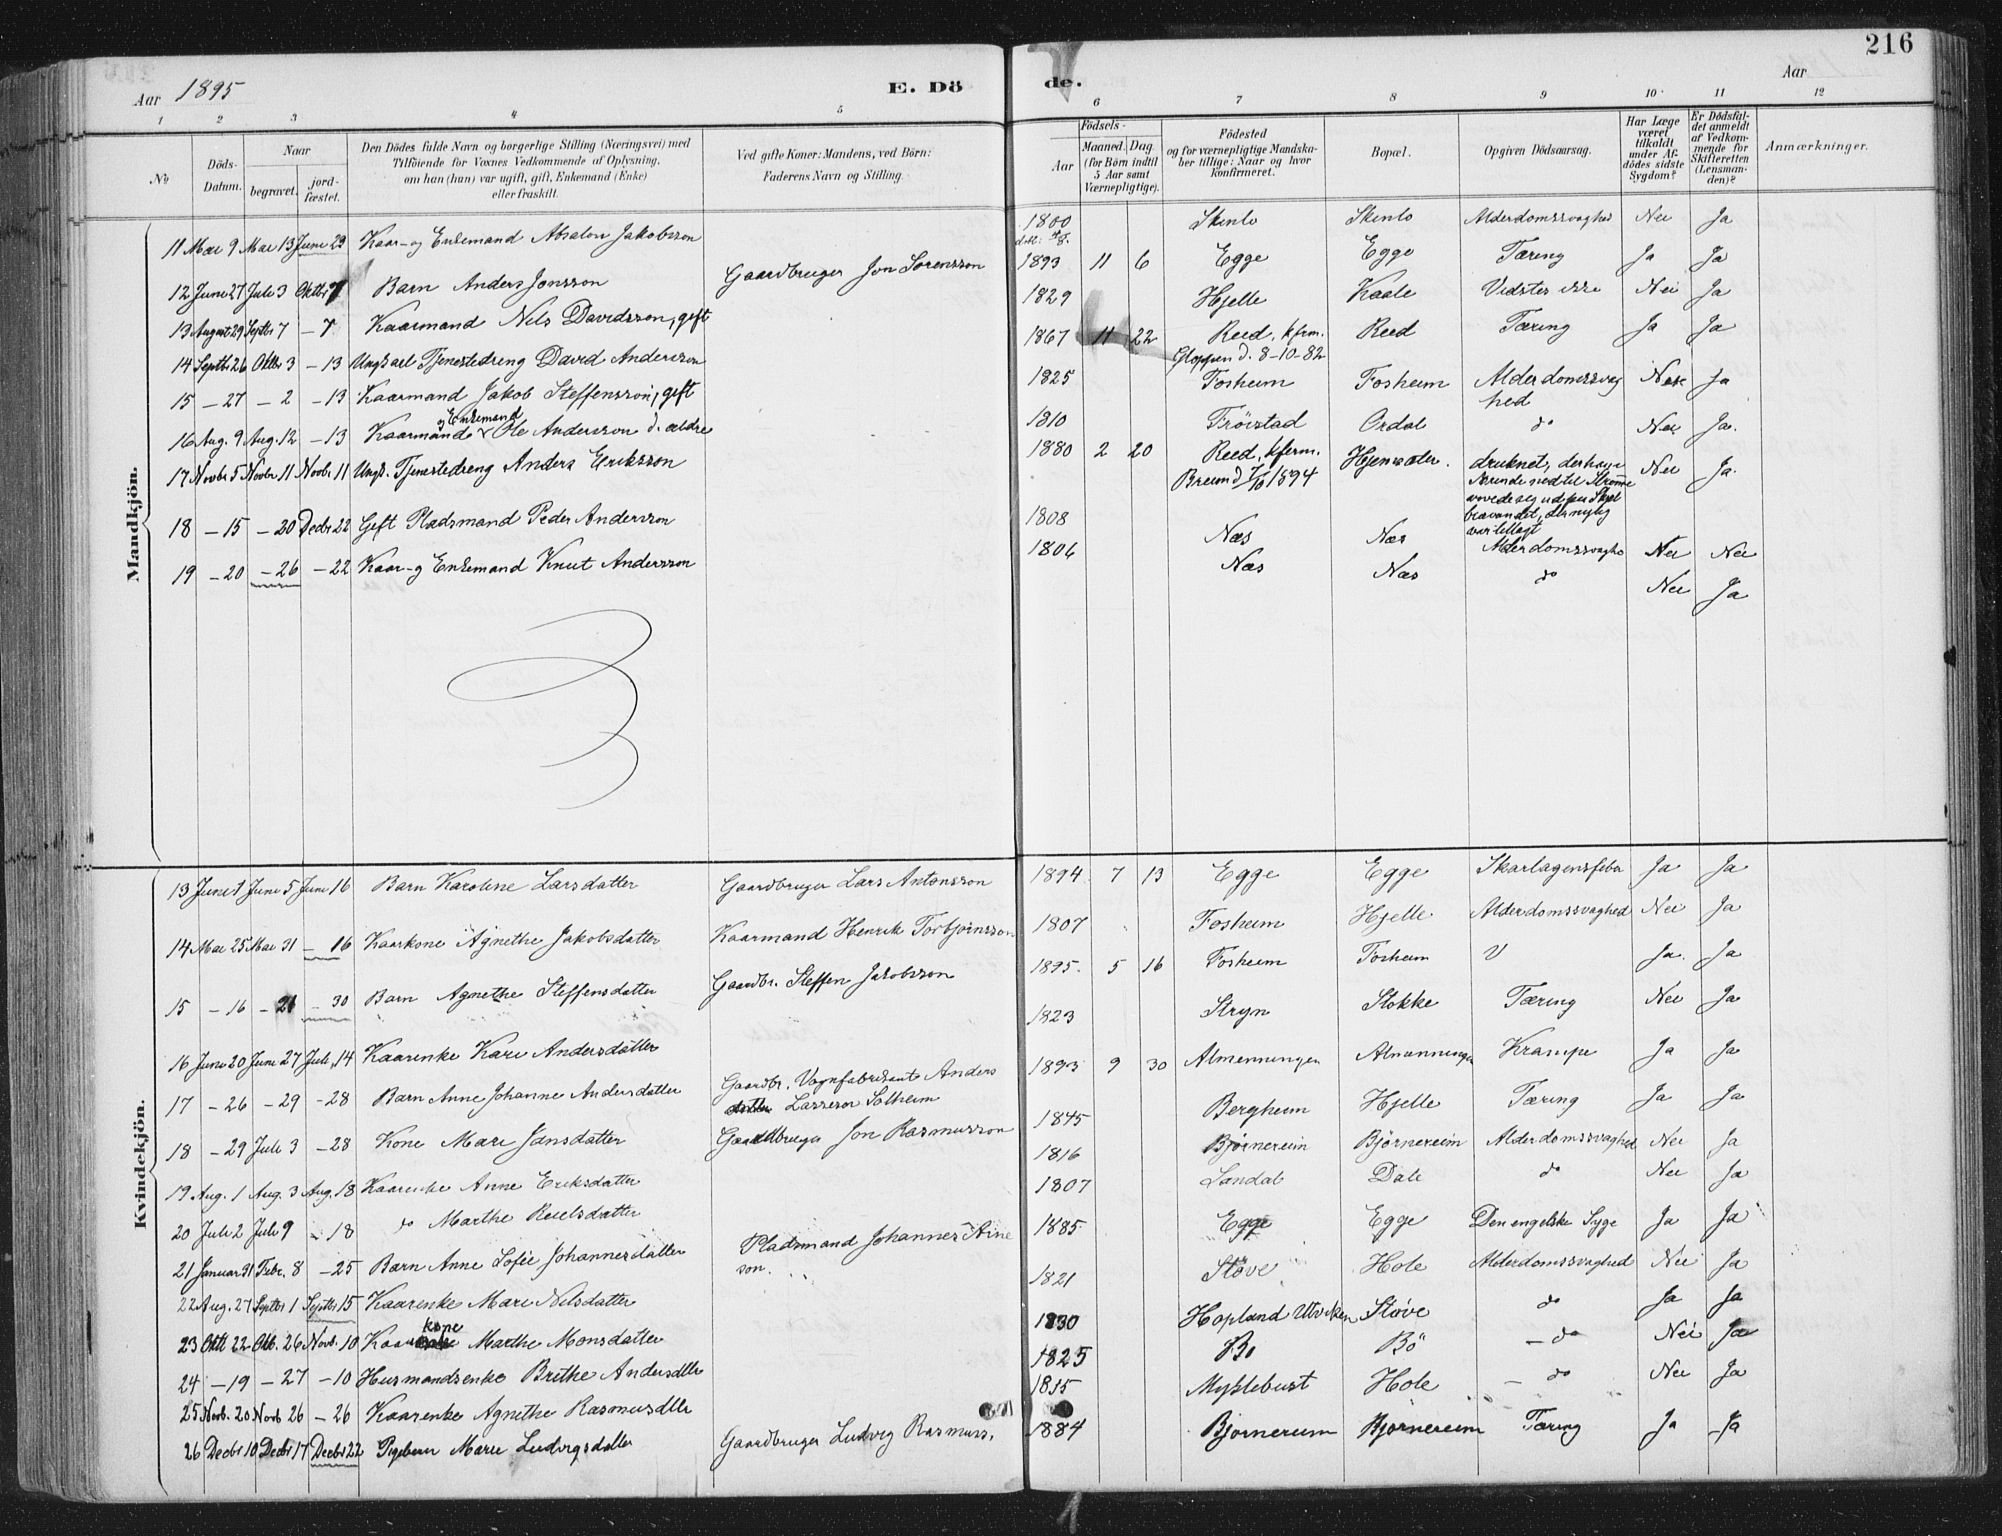 216
Aar 1895
E. Dö
de.
Aar
1 2 3 4 5 6 7 8 9 10 11 12
№
Döds-Datum.
Naar
begravet.
jord-fæstet.
Den Dödes fulde Navn og borgerlige Stilling (Næringsvei) med
Tilföiende for Voxnes Vedkommende af Oplysning,
om han (hun) var ugift, gift, Enkemand (Enke)
eller fraskilt.
Ved gifte Koner: Mandens, ved Börn:
Faderens Navn og Stilling.
Födsels-
Aar
Maaned. Dag
(for Börn indtil
5 Aar samt
Værnepligtige).
Födested
og for værnepligtige Mandska-
ber tillige: Naar og hvor
konfirmeret.
Bopæl.
Opgiven Dödsaarsag.
Har Læge
været
tilkaldt
under Af-
dödes sidste
Sygdom?
Er Dödsfal-
det anmeldt
af Vedkom-
mende for
Skifteretten
(Lensman-
den)?
Anmærkninger.
Mandkjön.
11 Mai 9 Mai 13 Juni 29 Kaar- og Enkemand Absalon Jakobsson 1800 Skinlo Skinlo Alderdomssvaghed Nei Ja
12 Juni 27 Juli 3 Oktbr 7 Barn Anders Jonsson Gaardbruger Jon Sörensson 1893 11 6 Egge Egge Tæring Ja Ja
13 August 29 Septbr 7 — 7 Kaarmand Nels Davidsson, gift 1829 Hjelle Kaale Vidstes ikke Nei Ja
14 Septbr 26 Oktbr 3 — 13 Ungkarl Tjenestedreng David Andersson 1867 11 22 Reed, kfrm. Reed Tæring Ja Ja
Gloppen d. 8-10-82
15 — 27 — 2 — 13 Kaarmand Jakob Steffensson, gift 1825 Fosheim Fosheim Alderdomssvag Nei Ja
hed
og Enkemand
16 Aug. 9 Aug. 12 — 13 Kaarmand Ole Andersson d. ældre 1810 Tröistad Ordal do Nei Ja.
17 Novbr 5 Novbr 11 Novbr 11 Ungk. Tjenestedreng Anders Eriksson 1880 2 20 Reed, kferm. Hjemsæter. druknet, der han i Nei Ja.
Breim d 7/10 1894 Ærende ned til Strömme
vovede sig ud paa Skjöl
brævandet, der nylig
var tillagt
18 — 15 — 20 Decbr 22 Gift Pladsmand Peder Andersson 1808 Næs Næs Alderdomssvaghe Nei Nei
19 — 20 — 26 — 22 Kaar- og Enkemand Knut Andersson 1806 Næs Næs do Nei Ja
Kvindekjön.
13 Juni 1 Juni 5 Juni 16 Barn Karoline Larsdatter Gaardbruger Lars Antonsson 1894 7 13 Egge Egge Skarlagensfeber Ja Ja
14 Mai 25 Mai 31 — 16 Kaarkone Agnethe Jakobsdatter Kaarmand Henrik Torbjörnsson 1807 Fosheim Hjelle Alderdomssvaghed Nei Ja
15 — 16 — 21 — 30 Barn Agnethe Steffensdatter Gaardbr. Steffen Jakobsson 1895. 5 16 Fosheim Fosheim Ja. Ja
16 Juni 20 Juni 27 Juli 14 Kaarenke Kari Andersdatter 1823 Stryn Stokke Tæring Nei Ja
17 — 26 — 29 — 28 Barn Anne Johanne Andersdatter Gaardbr. Vognfabrikant Anders 1893 9 30 Almenningen Almenningen Krampe Ja Ja
Lassesson Solheim
18 — 29 Juli 3 — 28 Kone Mari Jonsdatter Gaardbruger Jon Rasmusson 1845 Bergheim Hjelle Tæring Ja Ja
19 Aug. 1 Aug. 3 Aug. 18 Kaarenke Anne Eriksdatter 1816 Björnereim Björnereim Alderdomssvaghed Nei Ja
20 Juli 2 Juli 9 — 18 do Marthe Reielsdatter 1807 Sandal Dale do Nei Ja
21 Januar 31 Febr. 8 — 25 Barn Anne Sofie Johannesdatter Pladsmand Johannes Arne 1885 Egge Egge Den engelske Syge Ja Ja
son.
22 Aug. 27 Septbr 1 Septbr 15 Kaarenke Mari Nilsdatter 1821 Stöve Hole Alderdomssvaghed Nei Ja
kone
23 Oktb 22 Okb. 26 Novb. 10 Kaar Marthe Monsdatter 1830 Hopland Utviken Stöve do Ja Ja
24 — 19 — 27 — 10 Husmandsenke Brithe Andersdttr 1825 Bö Bö — do Nei Ja
25 Novb. 20 Novb 26 — 26 Kaarenke Agnethe Rasmusdttr 1815 Myklebust Hole — do Nei Ja
26 Decbr 10 Decbr 17 Decbr 22 Pigebarn Marie Ludvigsdatter Gaardbruger Ludvig Rasmuss. 1884 Björnereim Björnereim Tæring Ja Ja